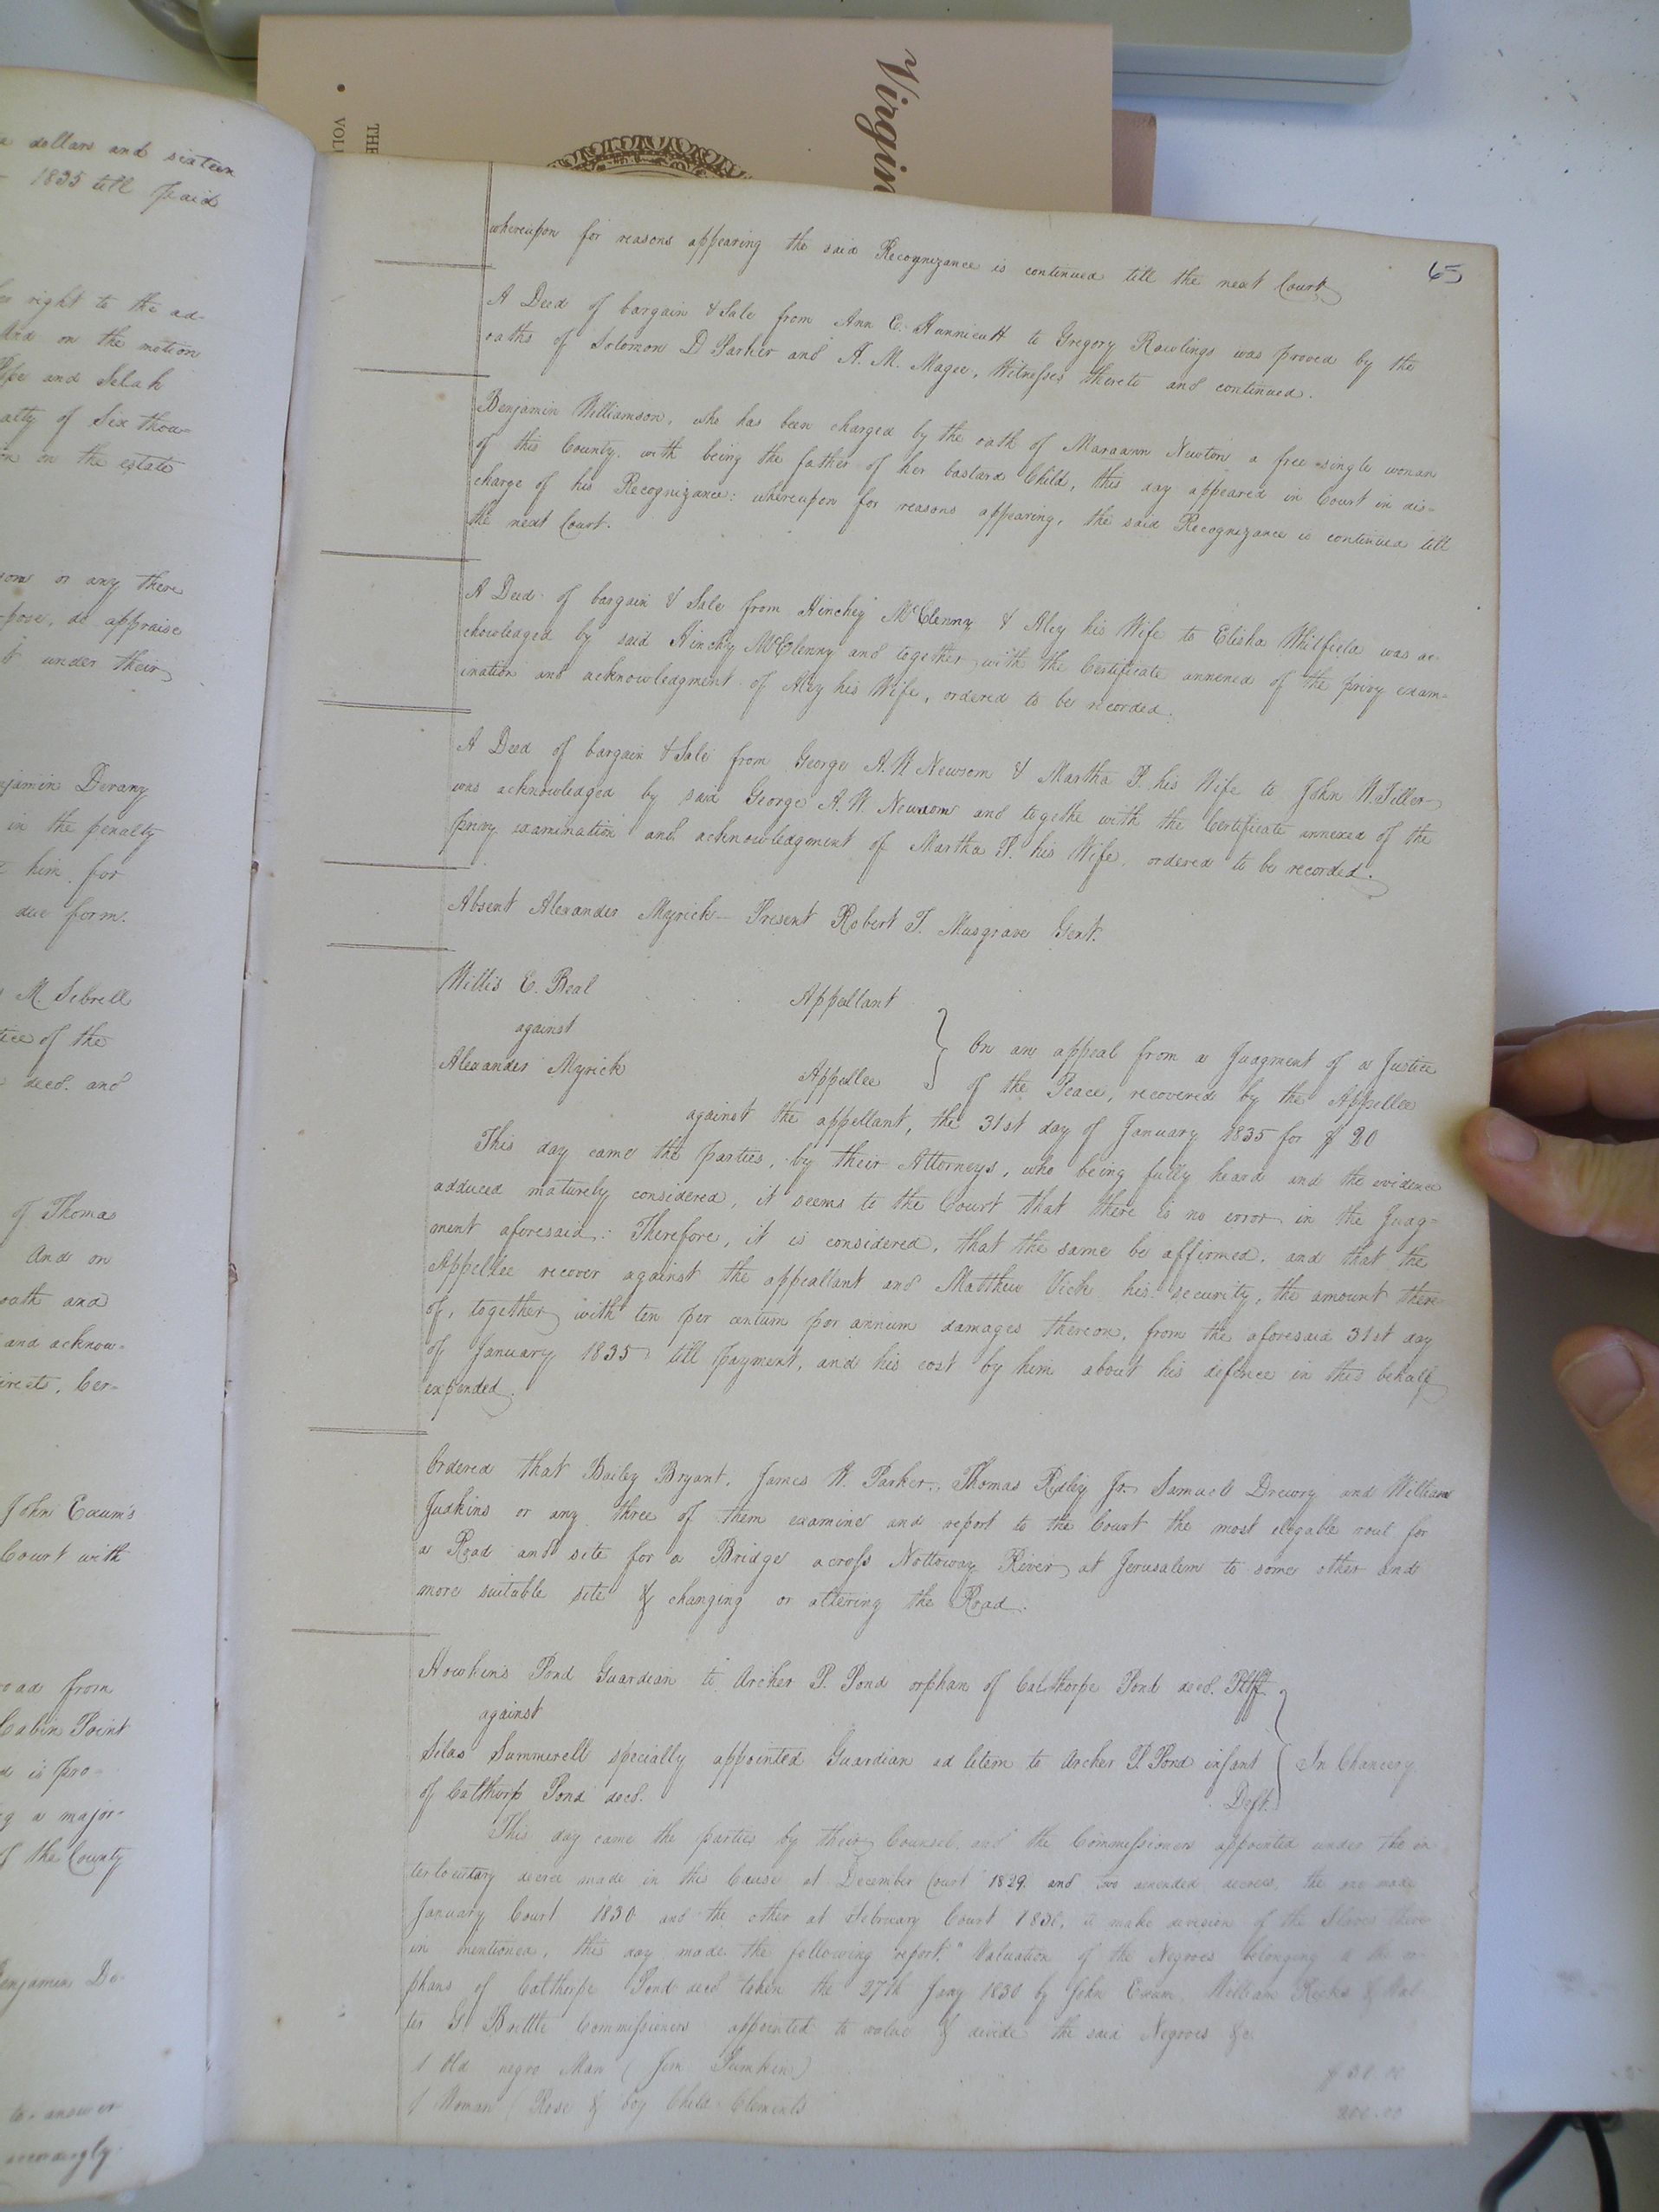 Virgin
THE
VOL
dollars and sixteen
1835 till paid
right to the ad-
And on the motion
and Selah
alty of Six thou-
on on the estate
or any there
-pose, do appraise
under their
njamin Devany
in the penalty
him for
due form.
M. Sebrell
of the
decd. and
of Thomas
And on
oath and
and acknow-
Cer-
John Exum's
Court with
oad from
Cabin Point
d is pro-
g a major-
of the County
enjamin De-
to answer
accordingly
65
whereupon for reasons appearing the said Recognizance is continued till the next Court
A Deed of bargain & Sale from Ann E. Hunnicutt to Gregory Rawlings was proved by the
oaths of Solomon D Parker and A. M. Magee, Witnesses thereto and continued.
Benjamin Williamson, who has been charged by the oath of Maraann Newton a free single woman
of this County, with being the father of her bastard Child, this day appeared in Court in dis-
charge of his Recognizance: whereupon for reasons appearing, the said Recognizance is continued till
the next Court.
A Deed of bargain & Sale from Hinchey McClenny & Aley his Wife to Elisha Whitfield was ac-
knowledged by said Hinchey McClenny and together with the Certificate annexed of the privy exam-
ination and acknowledgment of Aley his Wife, ordered to be recorded.
A Deed of bargain & Sale from George A. W Newsom & Martha P. his Wife to John W. Tiller
was acknowledged by said George A. W. Newsom and togethe with the Certificate annexed of the
privy examination and acknowledgement of Martha P. his Wife, ordered to be recorded.
Absent Alexander Myrick — Present Robert T. Musgrave Gent.
Willis E. Beal Appellant
against
Alexander Myrick Appellee
On an appeal from a Judgment of a Justice
of the Peace, recovered by the Appellee
against the appellant, the 31st day of January 1835 for $ 20
This day came the parties, by their Attorneys, who being fully heard and the evidence
adduced maturely considered, it seems to the Court that there is no error in the Judg-
ment aforesaid: Therefore, it is considered, that the same be affirmed, and that the
Appellee recover against the appeallant and Matthew Vick his security, the amount there
of, together with ten per centum per annum damages thereon, from the aforesaid 31st day
of January 1835 till payment, and his cost by him about his defence in this behalf
expended.
Ordered that Bailey Bryant, James W. Parker, Thomas Ridley Jr. Samuel Drewry and William
Judkins or any three of them examine and report to the Court the most elegable rout for
a Road and site for a Bridge across Nottoway River at Jerusalem to some other and
more suitable site & changing or altering the Road.
Howkins Pond Guardian to Archer P. Pond orphan of Calthorpe Pond decd. Pltff
against
Silas Summerell specially appointed Guardian ad litem to Archer P. Pond infant
of Calthorp Pond decd. Deft.
In Chancery
This day came the parties by their Counsel and the Commissioners appointed under the in
terlocutary decree made in this Cause at December Court 1829 and two amended decrees, the one made
January Court 1830 and the other at February Court to make division of the Slaves there
in mentioned, this day made the following report. "Valuation of the Negroes belonging to the or-
phans of Calthorpe Pond decd taken the 27th Jany 1830 by John Exum, William Ricks & Wal
ter G Brittle Commissioners appointed to value & divide the said Negroes &c
1 Old negro Man (Jim Pumkin) $
1 Woman (Rose & boy Child Clements